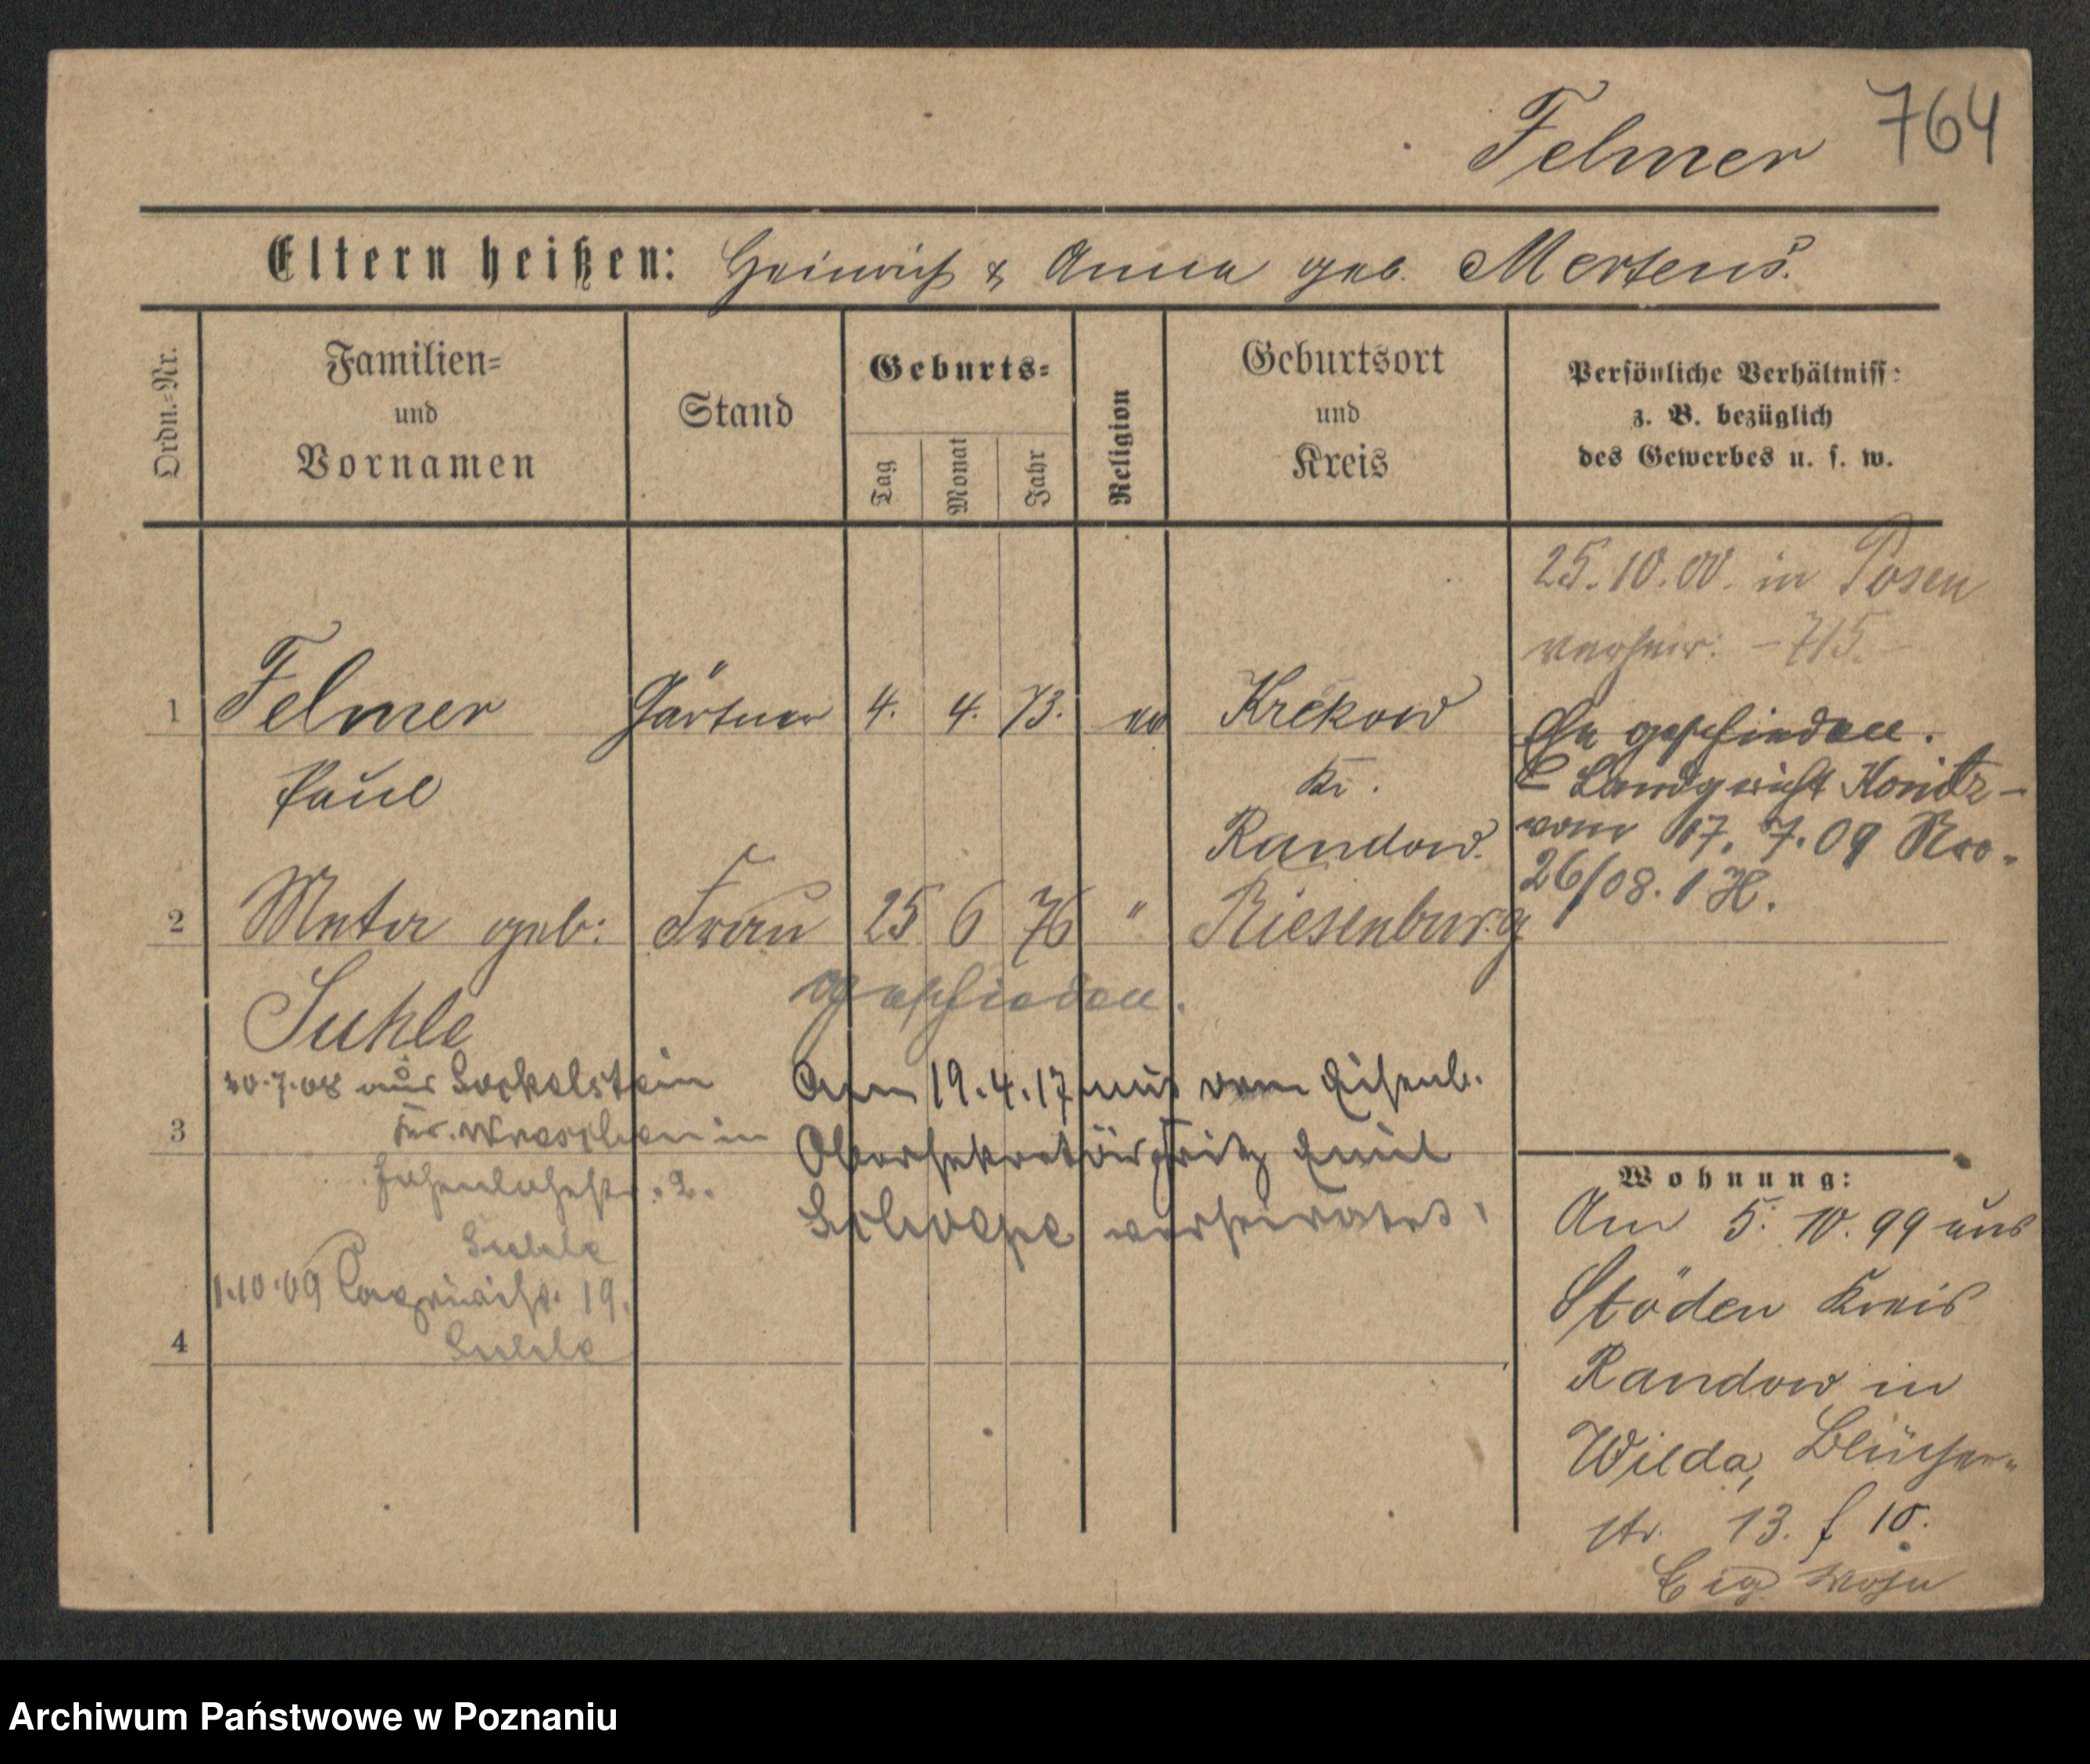 Felmer 764
Eltern heißen: Heinrich & Anna geb. Mertens.
Ordn.=Nr.
Familien=
und
Vornamen
Stand
Geburts=
Tag
Monat
Jahr
Religion
Geburtsort
und
Kreis
Persönliche Verhältniss
z. B. bezüglich
des Gewerbes u. s. w.
25. 10. 00. in Posen
verheir: - 715. -
1 Felmer Gärtner 4. 4. 73. ev Krekow
Paul Kr.
Randow.
Ehe geschieden.
Landgericht Konitz -
vom 17. 7. 09
26/08.
2 Meta geb: Frau 25 6 76 " Riesenburg
Suhle
geschieden.
20.7.08 aus Sockelstein
Kr. Wreschen in
3
Am 19.4.17 mit dem Eisenb.
Obersekretär Fritz Emil
verheiratet.
Suhle
1.10.09 19.
Suhle
4
Wohnung:
Am 5. 10. 99 aus
Stöden Kreis
Randow in
Wilda, Blücher-
str. 13.
Eig. Wohn
Archiwum Państwowe w Poznaniu